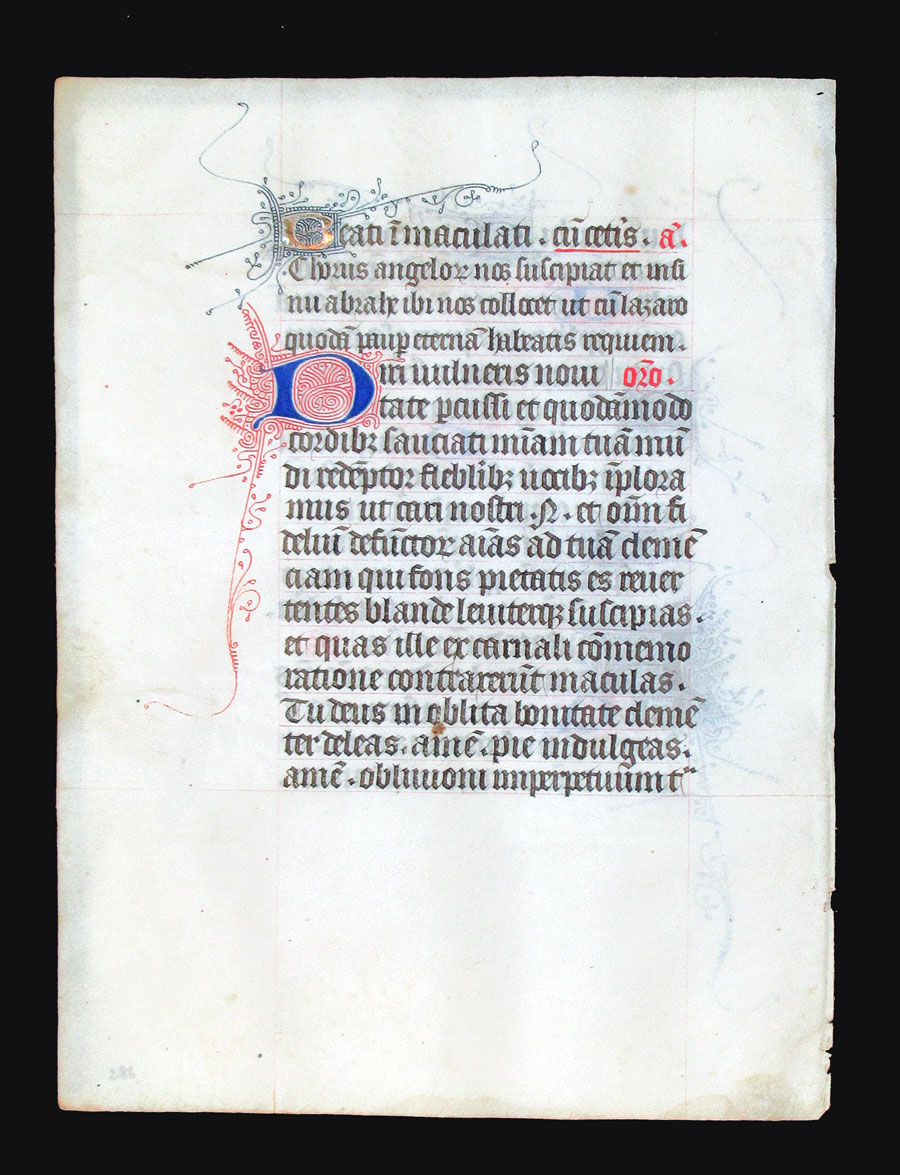 Beati īmaculati . cū cetis . añ.
Chorus angeloꝝ nos suscipiat et in si
nu abrahe ibi nos collocet ut cū lazaro
quodā paupe eternā habeatis requiem .
Diri uulneris noui oro .
tate pcussi et quodāmodo
cordibꝫ sauciati mīam tuā mū
di redēptor flebilibꝫ uocibꝫ īplora
mus ut cari nostri . N . et oīm fi
deliū defūctoꝝ aīas ad tuā clemē
ciam qui fons pietatis es reuer
tentes blande leniterqꝫ suscipias .
et quas ille ex carnali cōmemo
ratione contraxerūt maculas .
Tu deus in oblita bonitate clemē
ter deleas . amē . pie indulgeas .
amē . obliuioni imperpetuum t